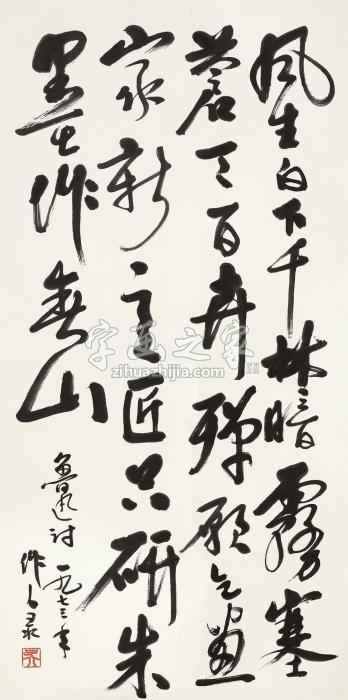 風生白下千林暗霧塞
蒼天百卉殫願乞畫
家新意匠只研朱
墨作春山
魯迅詩 一九七三年
作人录
字画之家
zihuazhijia.com